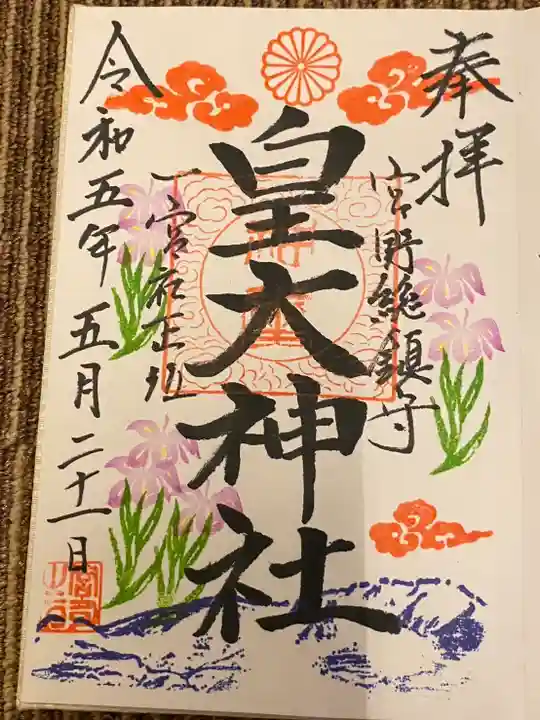 奉拝
宮野総鎮守
皇大神社
一宮社正地
令和五年五月二十一日